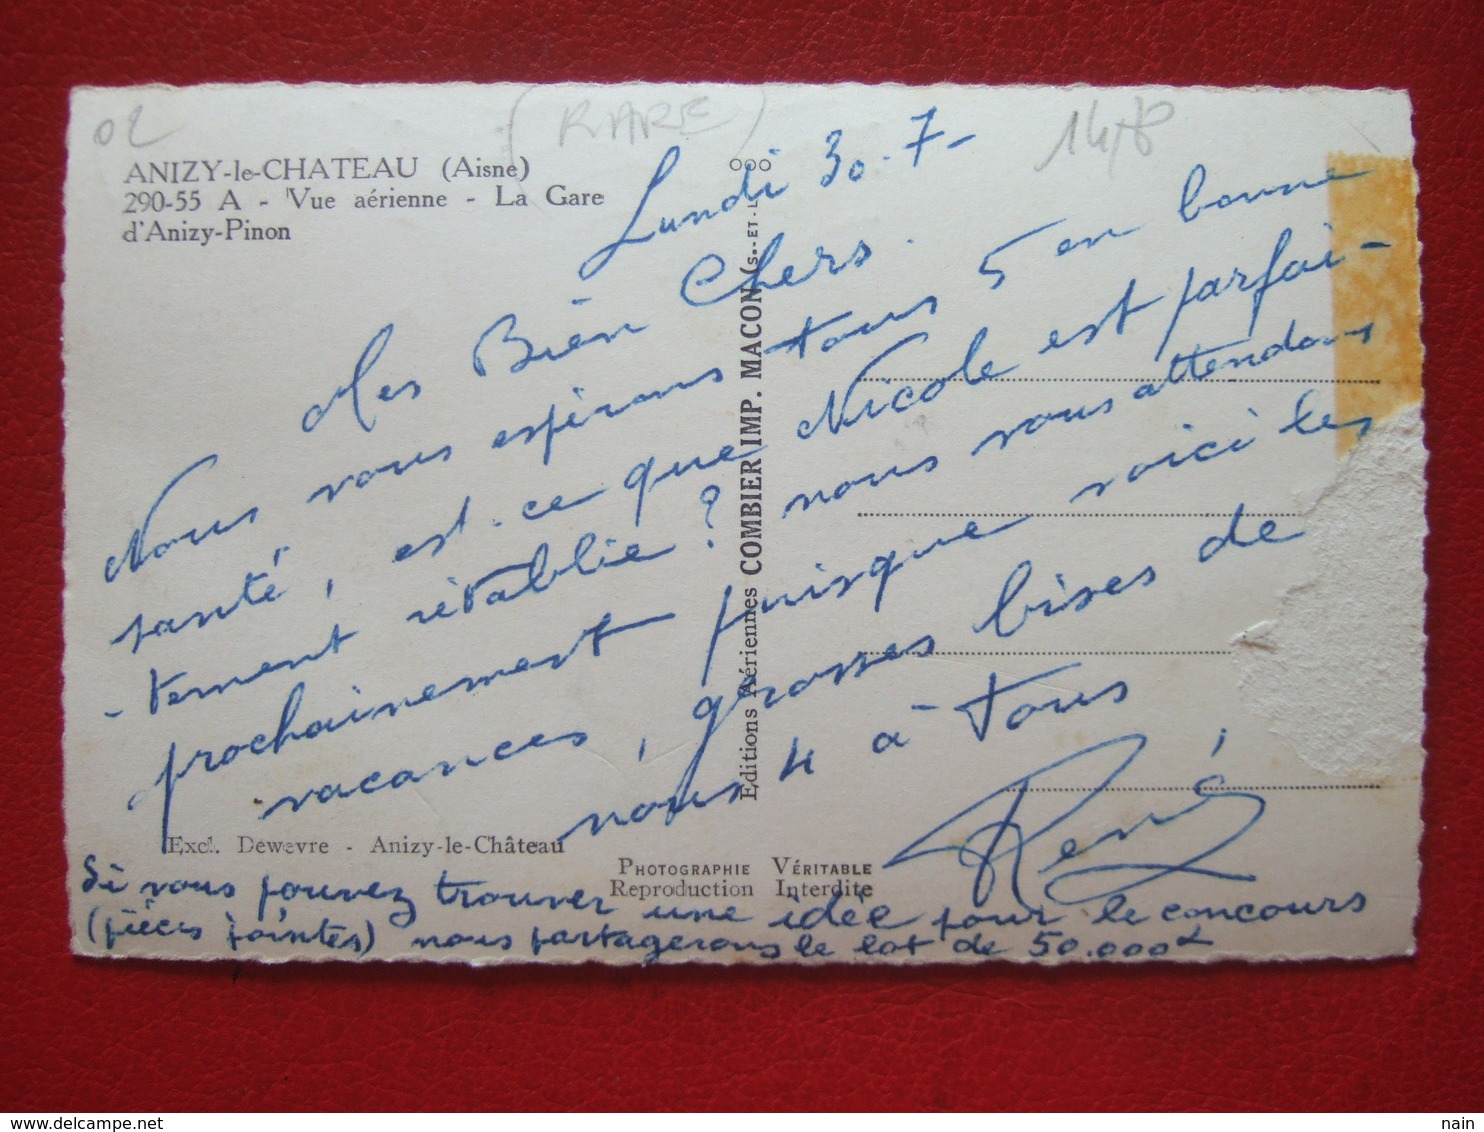 02
(RARE)
ANIZY-le-CHATEAU (Aisne)
290-55 A - Vue aérienne - La Gare
d'Anizy-Pinon
Lundi 30.7-
Mes Bien Chers.
Nous vous espérons tous 5 en bonne
santé, est-ce que Nicole est parfai-
-tement rétablie? nous vous attendons
prochainement puisque voici les
vacances, grosses bises de
nous 4 à tous
René
Excl. Dewevre - Anizy-le-Château
Editions Aériennes COMBIER IMP. MACON (S.-ET-L
PHOTOGRAPHIE VÉRITABLE
Reproduction Interdite
Si vous pouvez trouver une idée pour le concours
(pièces jointes) nous partagerons le lot de 50.000
nain